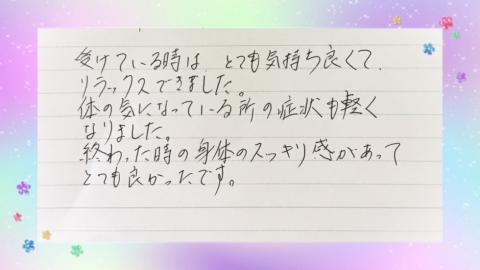 受けている時は、とても気持ち良くて、
リラックスできました。
体の気になっている所の症状も軽く
なりました。
終わった時の身体のスッキリ感があって
とても良かったです。